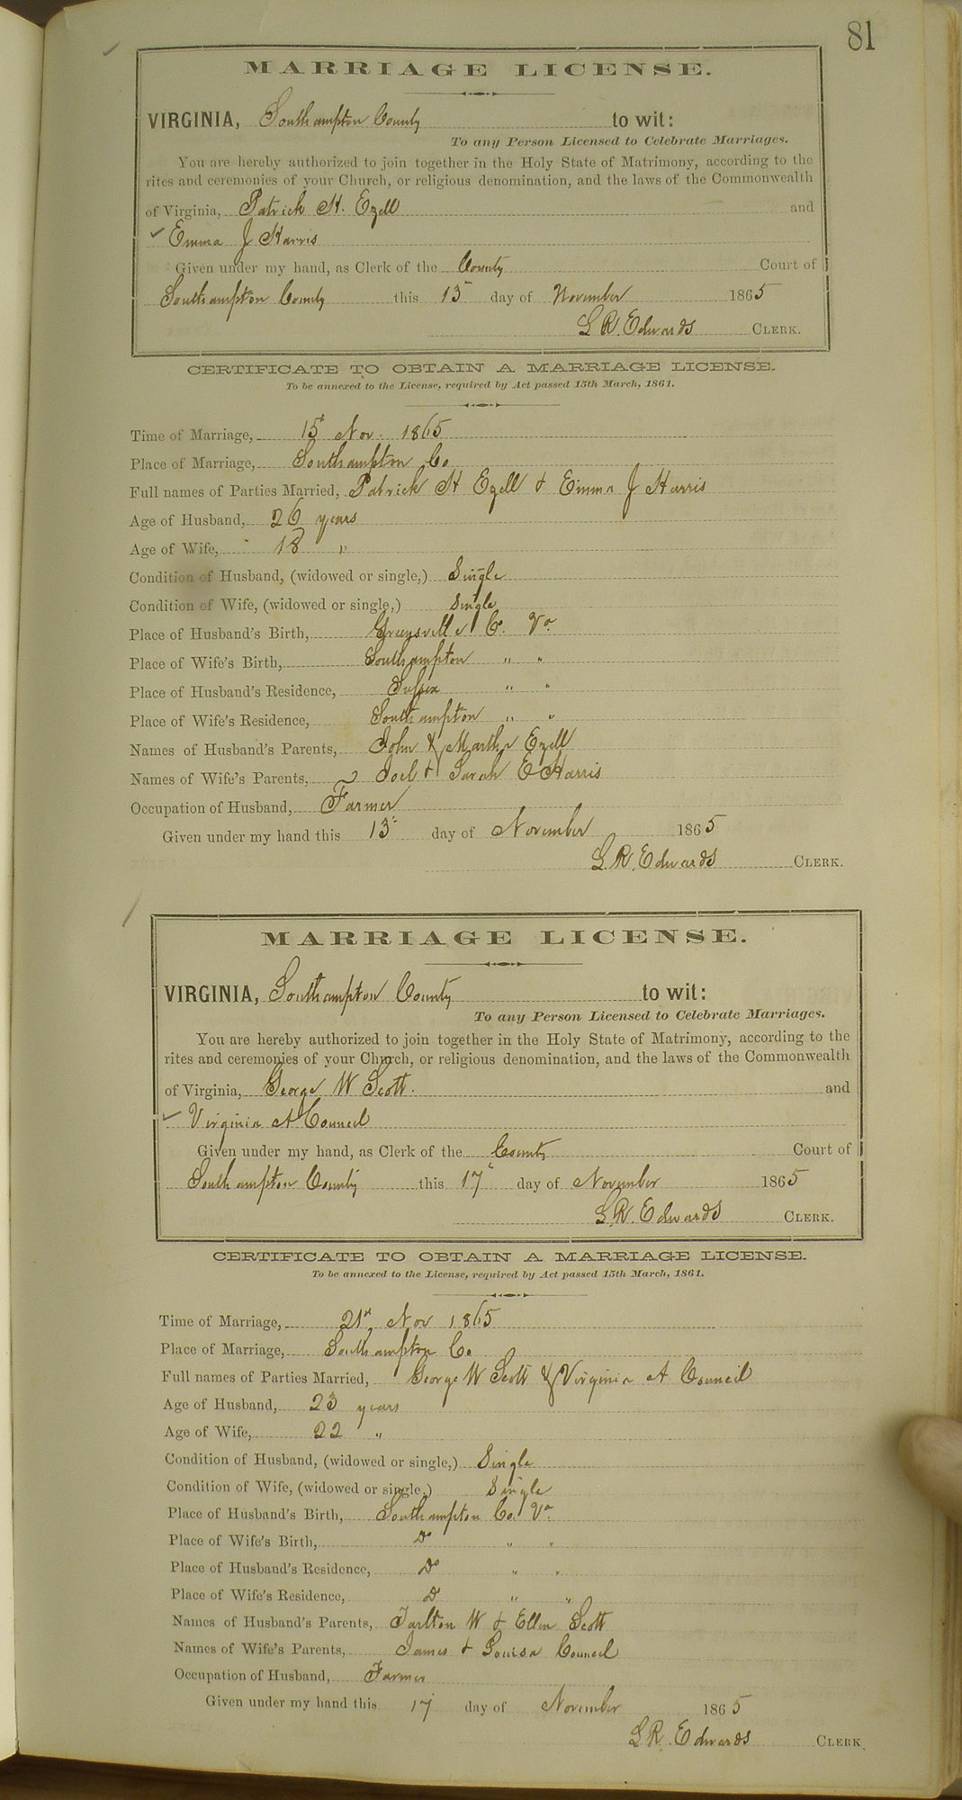 81
MARRIAGE LICENSE.
VIRGINIA, Southampton County to wit:
To any Person Licensed to Celebrate Marriages.
You are hereby authorized to join together in the Holy State of Matrimony, according to the
rites and ceremonies of your Church, or religious denomination, and the laws of the Commonwealth
of Virginia, Patrick H. Ezell and
Emma J Harris
Given under my hand, as Clerk of the County Court of
Southampton County this 13 day of November 1865
L R. Edwards CLERK.
CERTIFICATE TO OBTAIN A MARRIAGE LICENSE.
To be annexed to the License, required by Act passed 15th March, 1861.
Time of Marriage, 15 Nov. 1865
Place of Marriage, Southampton Co
Full names of Parties Married, Patrick H Ezell & Emma J Harris
Age of Husband, 26 years
Age of Wife, 18 "
Condition of Husband, (widowed or single,) Single
Condition of Wife, (widowed or single,) Single
Place of Husband's Birth, Greensville Co. Va
Place of Wife's Birth, Southampton " "
Place of Husband's Residence, Sussex " "
Place of Wife's Residence, Southampton " "
Names of Husband's Parents, John & Martha Ezell
Names of Wife's Parents, Joel & Sarah E Harris
Occupation of Husband, Farmer
Given under my hand this 13 day of November 1865
L. R. Edwards CLERK.
MARRIAGE LICENSE.
VIRGINIA, Southampton County to wit:
To any Person Licensed to Celebrate Marriages.
You are hereby authorized to join together in the Holy State of Matrimony, according to the
rites and ceremonies of your Church, or religious denomination, and the laws of the Commonwealth
of Virginia, George W Scott. and
Virginia A Council
Given under my hand, as Clerk of the County Court of
Southampton County this 17 day of November 1865
L. R. Edwards CLERK.
CERTIFICATE TO OBTAIN A MARRIAGE LICENSE.
To be annexed to the License, required by Act passed 15th March, 1861.
Time of Marriage, 21st Nov 1865
Place of Marriage, Southampton Co
Full names of Parties Married, George W Scott & Virginia A Council
Age of Husband, 23 years
Age of Wife, 22 "
Condition of Husband, (widowed or single,) Single
Condition of Wife, (widowed or single,) Single
Place of Husband's Birth, Southampton Co. Va
Place of Wife's Birth, Do " "
Place of Husband's Residence, Do " "
Place of Wife's Residence, Do " "
Names of Husband's Parents, Tarlton W & Ellen Scott
Names of Wife's Parents, James & Louisa Council
Occupation of Husband, Farmer
Given under my hand this 17 day of November 1865
L R. Edwards CLERK.